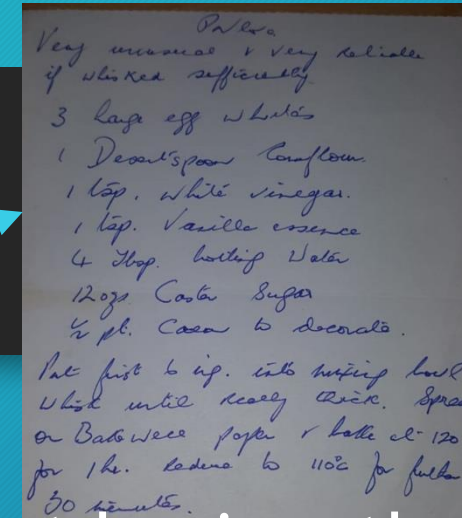 Pavlova
Very unusual & very reliable
if whisked sufficiently
3 large egg whites
1 Desert'spoon Cornflour.
1 tsp. white vinegar.
1 tsp. Vanilla essence
4 Tbsp. boiling Water
12 ozs. Castor Sugar
½ pt. Cream to decorate.
Put first 6 ing. into mixing bowl
Whisk until really thick. Sprea
on Bakewell paper & bake at 120
for 1 hr. Reduce to 110°c for further
30 minutes.